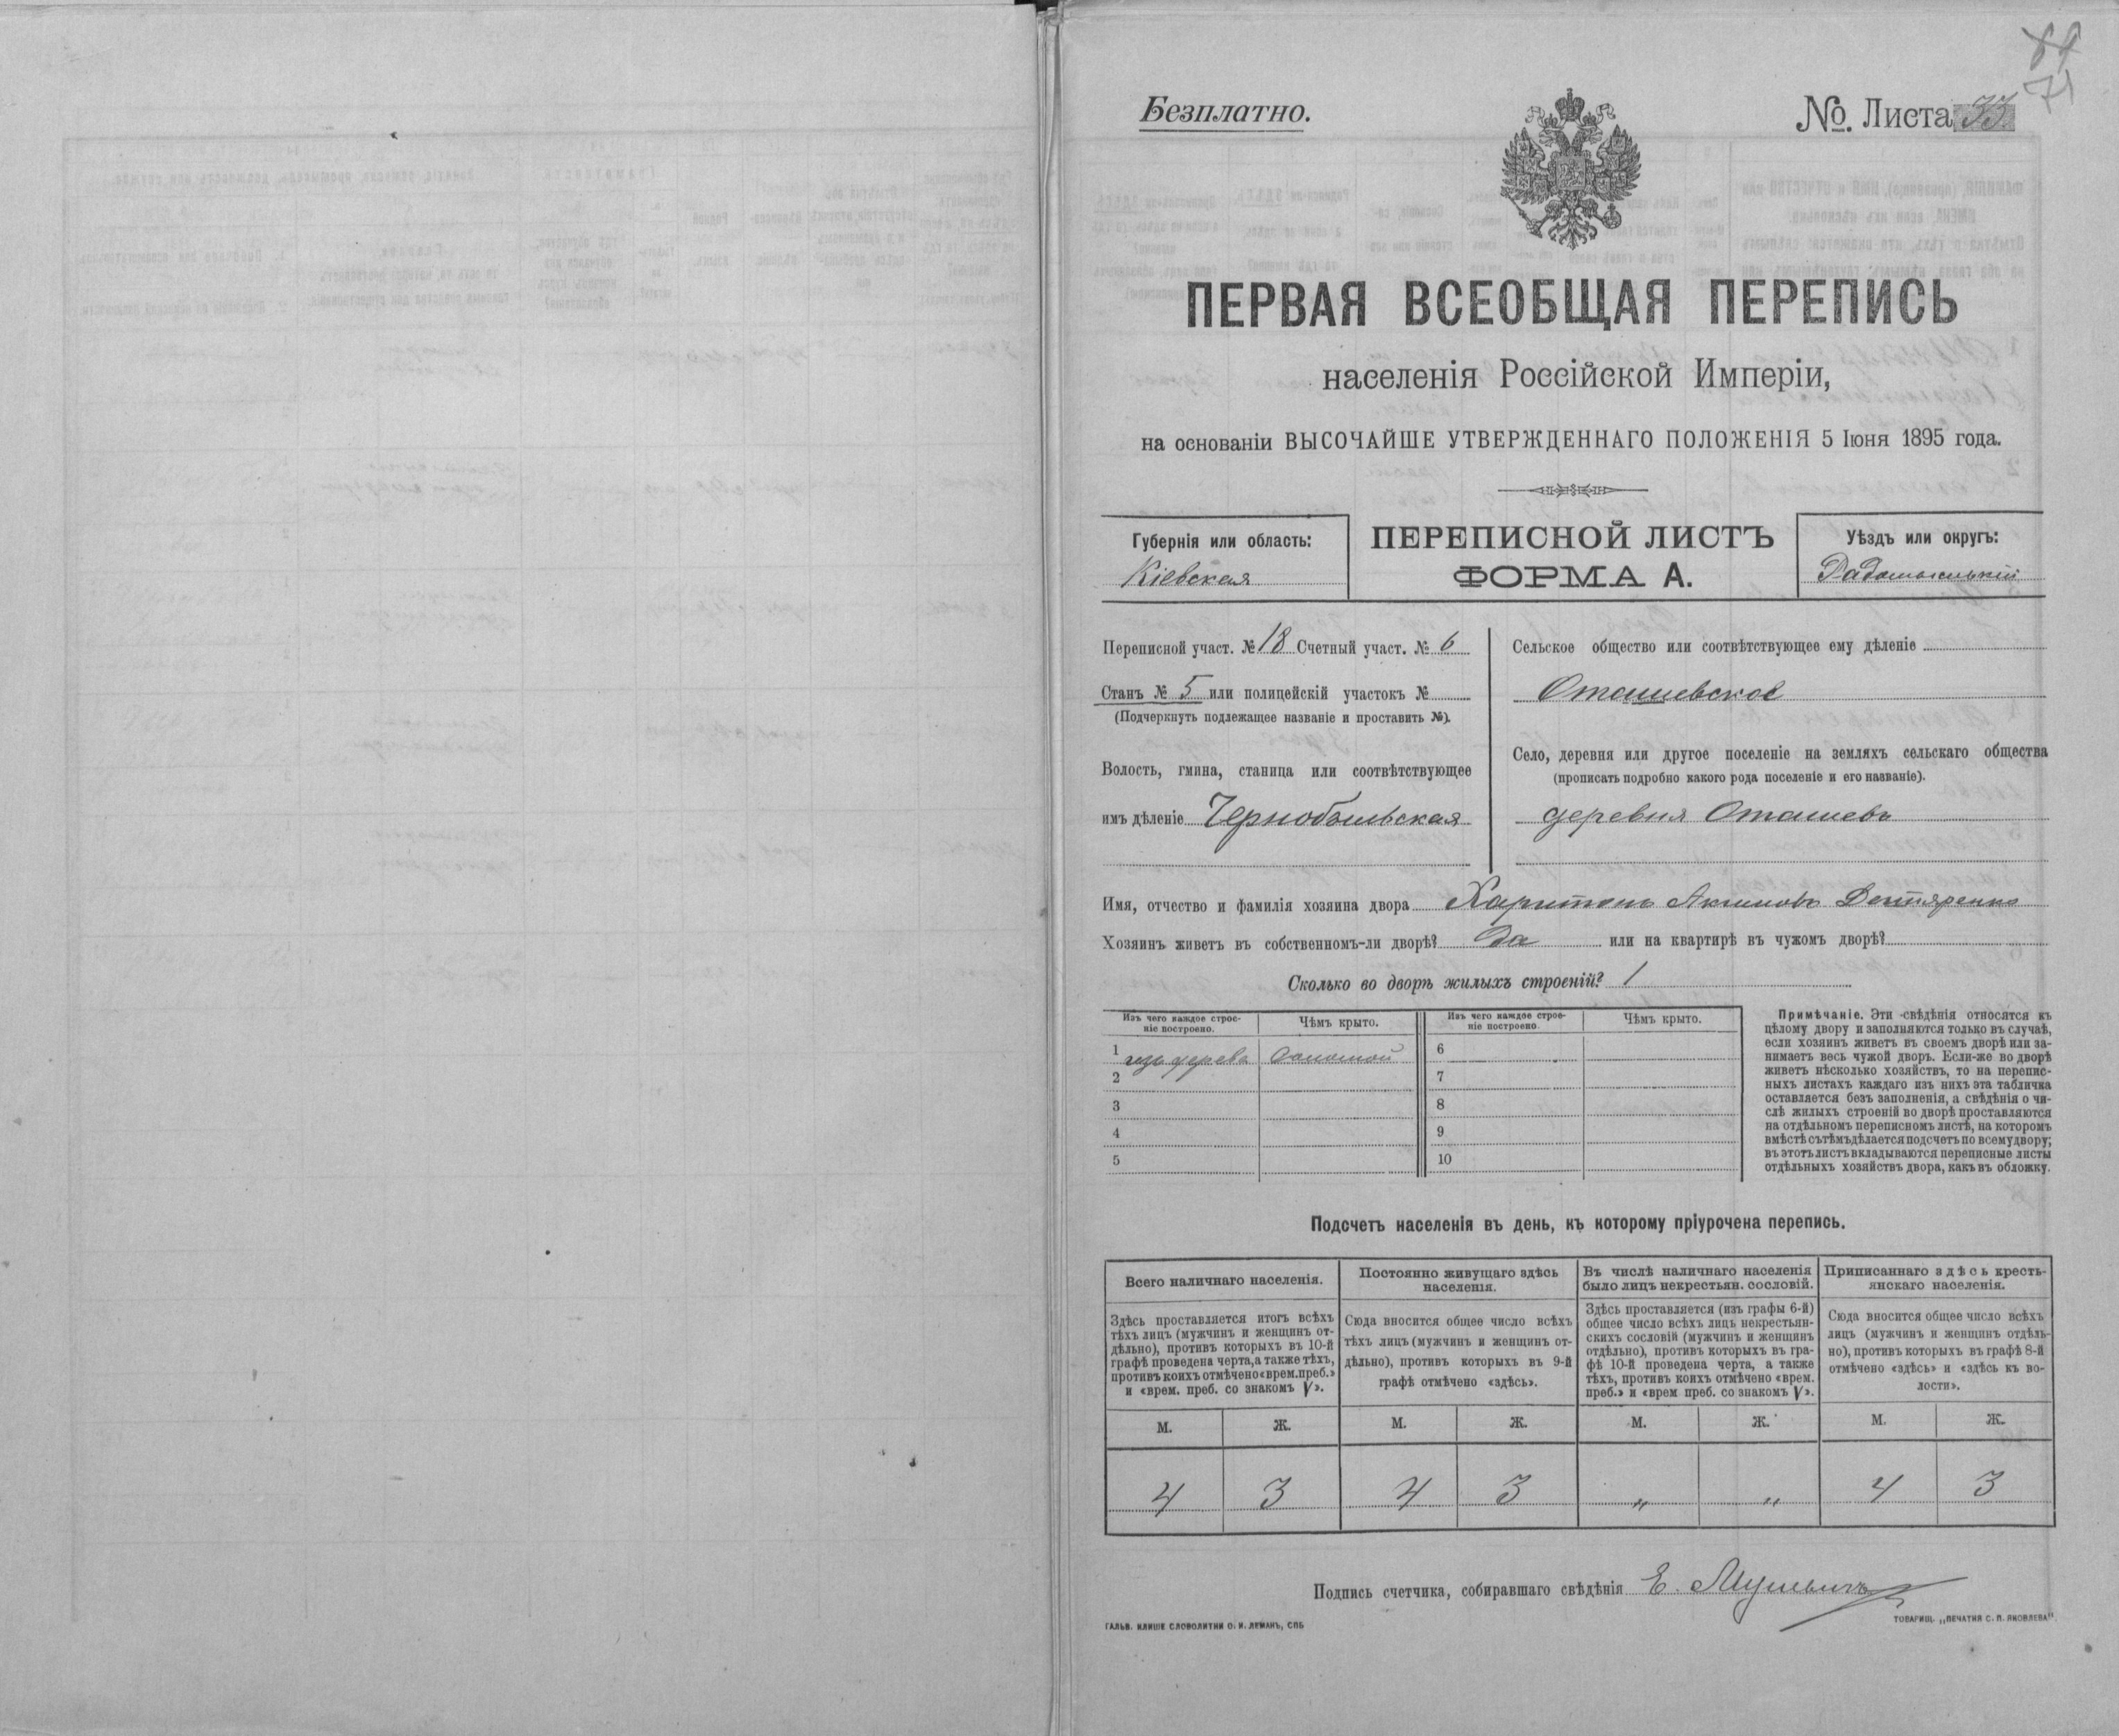 71
Безплатно.
№. Листа 33
ПЕРВАЯ ВСЕОБЩАЯ ПЕРЕПИСЬ
населенія Россійской Имперіи,
на основаніи ВЫСОЧАЙШЕ УТВЕРЖДЕННАГО ПОЛОЖЕНІЯ 5 Іюня 1895 года.
Губернія или область:
Кіевская
ПЕРЕПИСНОЙ ЛИСТЪ
ФОРМА А.
Уѣздъ или округъ:
Радомысльскій
Переписной участ. № 18 Счетный участ. № 6
Станъ № 5 или полицейскій участокъ №
(Подчеркнуть подлежащее названіе и проставить №).
Волость, гмина, станица или соотвѣтствующее
имъ дѣленіе Чернобыльская
Сельское общество или соотвѣтствующее ему дѣленіе
Оташевское
Село, деревня или другое поселеніе на земляхъ сельскаго общества
(прописать подробно какого рода поселеніе и его названіе).
деревня Оташевъ
Имя, отчество и фамилія хозяина двора Харитонъ Акимовъ Дегтяренко
Хозяинъ живетъ въ собственномъ-ли дворѣ? Да или на квартирѣ въ чужомъ дворѣ?
Сколько во дворѣ жилыхъ строеній? 1
Изъ чего каждое строе-
ніе построено.
Чѣмъ крыто.
Изъ чего каждое строе-
ніе построено.
Чѣмъ крыто.
1 изъ дерева Соломой 6
2 7
3 8
4 9
5 10
Примѣчаніе. Эти свѣдѣнія относятся къ
цѣлому двору и заполняются только въ случаѣ,
если хозяинъ живетъ въ своемъ дворѣ или за-
нимаетъ весь чужой дворъ. Если-же во дворѣ
живетъ нѣсколько хозяйствъ, то на перепис-
ныхъ листахъ каждаго изъ нихъ эта табличка
оставляется безъ заполненія, а свѣдѣнія о чи-
слѣ жилыхъ строеній во дворѣ проставляются
на отдѣльномъ переписномъ листѣ, на которомъ
вмѣстѣ съ тѣмъ дѣлается подсчетъ по всему двору;
въ этотъ листъ вкладываются переписные листы
отдѣльныхъ хозяйствъ двора, какъ въ обложку.
Подсчетъ населенія въ день, къ которому пріурочена перепись.
Всего наличнаго населенія.
Здѣсь проставляется итогъ всѣхъ
тѣхъ лицъ (мужчинъ и женщинъ от-
дѣльно), противъ которыхъ въ 10-й
графѣ проведена черта, а также тѣхъ,
противъ коихъ отмѣчено «врем. преб.»
и «врем. преб. со знакомъ V».
Постоянно живущаго здѣсь
населенія.
Сюда вносится общее число всѣхъ
тѣхъ лицъ (мужчинъ и женщинъ от-
дѣльно), противъ которыхъ въ 9-й
графѣ отмѣчено «здѣсь».
Въ числѣ наличнаго населенія
было лицъ некрестьян. сословій.
Здѣсь проставляется (изъ графы 6-й)
общее число всѣхъ лицъ некрестьян-
скихъ сословій (мужчинъ и женщинъ
отдѣльно), противъ которыхъ въ гра-
фѣ 10-й проведена черта, а также
тѣхъ, противъ коихъ отмѣчено «врем.
преб.» и «врем преб. со знакомъ V».
Приписаннаго здѣсь кресть-
янскаго населенія.
Сюда вносится общее число всѣхъ
лицъ (мужчинъ и женщинъ отдѣль-
но), противъ которыхъ въ графѣ 8-й
отмѣчено «здѣсь» и «здѣсь къ во-
лости».
М. Ж. М. Ж. М. Ж. М. Ж.
4 3 4 3 " " 4 3
Подпись счетчика, собиравшаго свѣдѣнія Е.
ГАЛЬВ. КЛИШЕ СЛОВОЛИТНИ О. И. ЛЕМАНЪ, СПБ
ТОВАРИЩ. „ПЕЧАТНЯ С. П. ЯКОВЛЕВА".